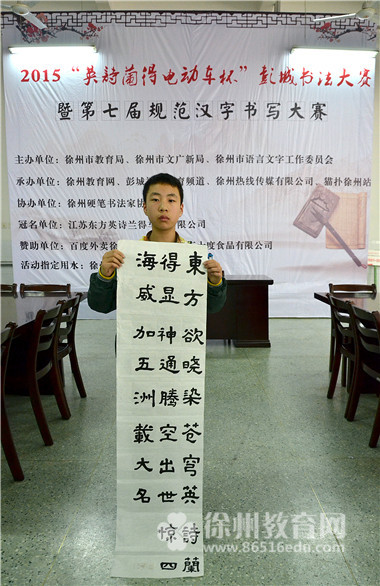 2015“英詩蘭得电动车杯”彭城书法大赛
暨第七届规范汉字书写大赛
主办单位：徐州市教育局、徐州市文广新局、徐州市语言文字工作委员会
承办单位：徐州教育网、彭城 育频道、徐州热线传媒有限公司、猫扑徐州站
协办单位：徐州硬笔书法家协
冠名单位：江苏东方英诗兰得 有限公司
赞助单位：百度外卖徐 大度食品有限公司
活动指定用水：徐
東方欲晓染苍穹英詩蘭
得显神通騰空出世惊四
海威加五洲載大名
徐州教育网
www.86516edu.com